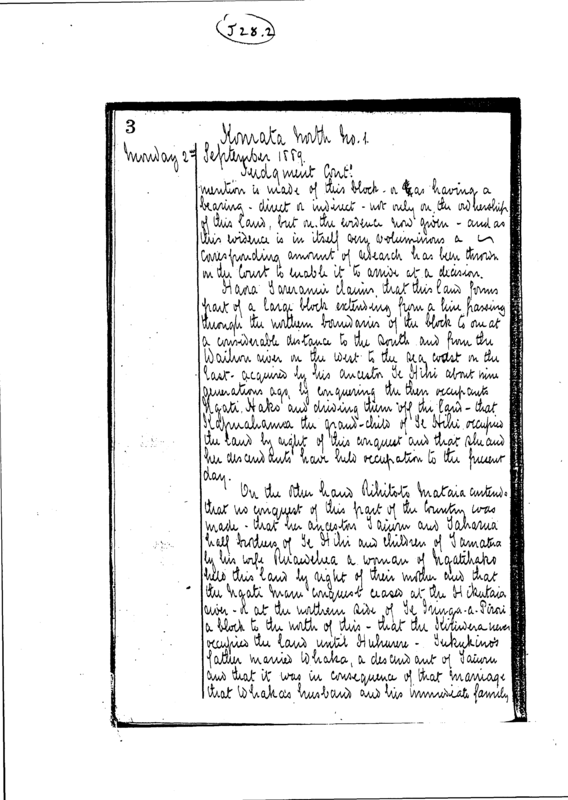 J28.2
3
Komata North No. 1.
Monday 2nd September 1889.
Judgment Contd.
mention is made of this block - or as having a
bearing - direct or indirect - not only on the ownership
of this land, but on the evidence now given - and as
this evidence is in itself very voluminous a
corresponding amount of research has been thrown
on the Court to enable it to arrive at a decision.
Haora Tareranui claims that this land forms
part of a large block extending from a line passing
through the northern boundaries of the block to one at
a considerable distance to the South and from the
Waihou river on the west to the sea coast on the
East - acquired by his ancestor Te Hihi about nine
generations ago, by conquering the then occupants
Ngati Hako and driving them off the land - that
the grand-child of Te Hihi occupied
the land by right of this conquest and that she and
her descendants have held occupation to the present
day.
On the other hand Rihitoto Mataia contends
that no conquest of this part of the Country was
made - that her ancestors Taiuru and Taharua
half brothers of Te Hihi and children of Tamatera
by his wife Ruawehea a woman of Ngatihako
held this land by right of their mother and that
the Ngati Maru conquest ceased at the Hikutaia
river - or at the northern side of Te
a block to the north of this - that the Kiriwera never
occupied the land until Huhurere - Tukukino's
father married Whaka, a descendant of Taiuru
and that it was in consequence of that marriage
that Whaka's husband and his immediate family